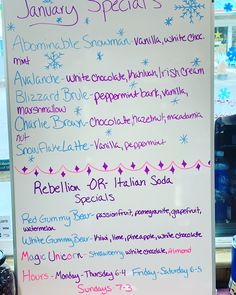 January Specials
Abominable Snowman - Vanilla, white choc.
mint
Avalanche - White Chocolate, Kahluah, Irish Cream
Blizzard Brule - peppermint bark, vanilla,
marshmallow
Charlie Brown - Chocolate, hazelnut, macadamia
nut
Snowflake Latte - Vanilla, peppermint
Rebellion -OR- Italian Soda
Specials
Red Gummy Bear - passionfruit, pomegranite, grapefruit,
watermelon
White Gummy Bear - Kiwi, lime, pineapple, white chocolate
Magic Unicorn - Strawberry, white chocolate, Almond
Hours - Monday - Thursday 6-4 Friday - Saturday 6-5
Sundays 7-3